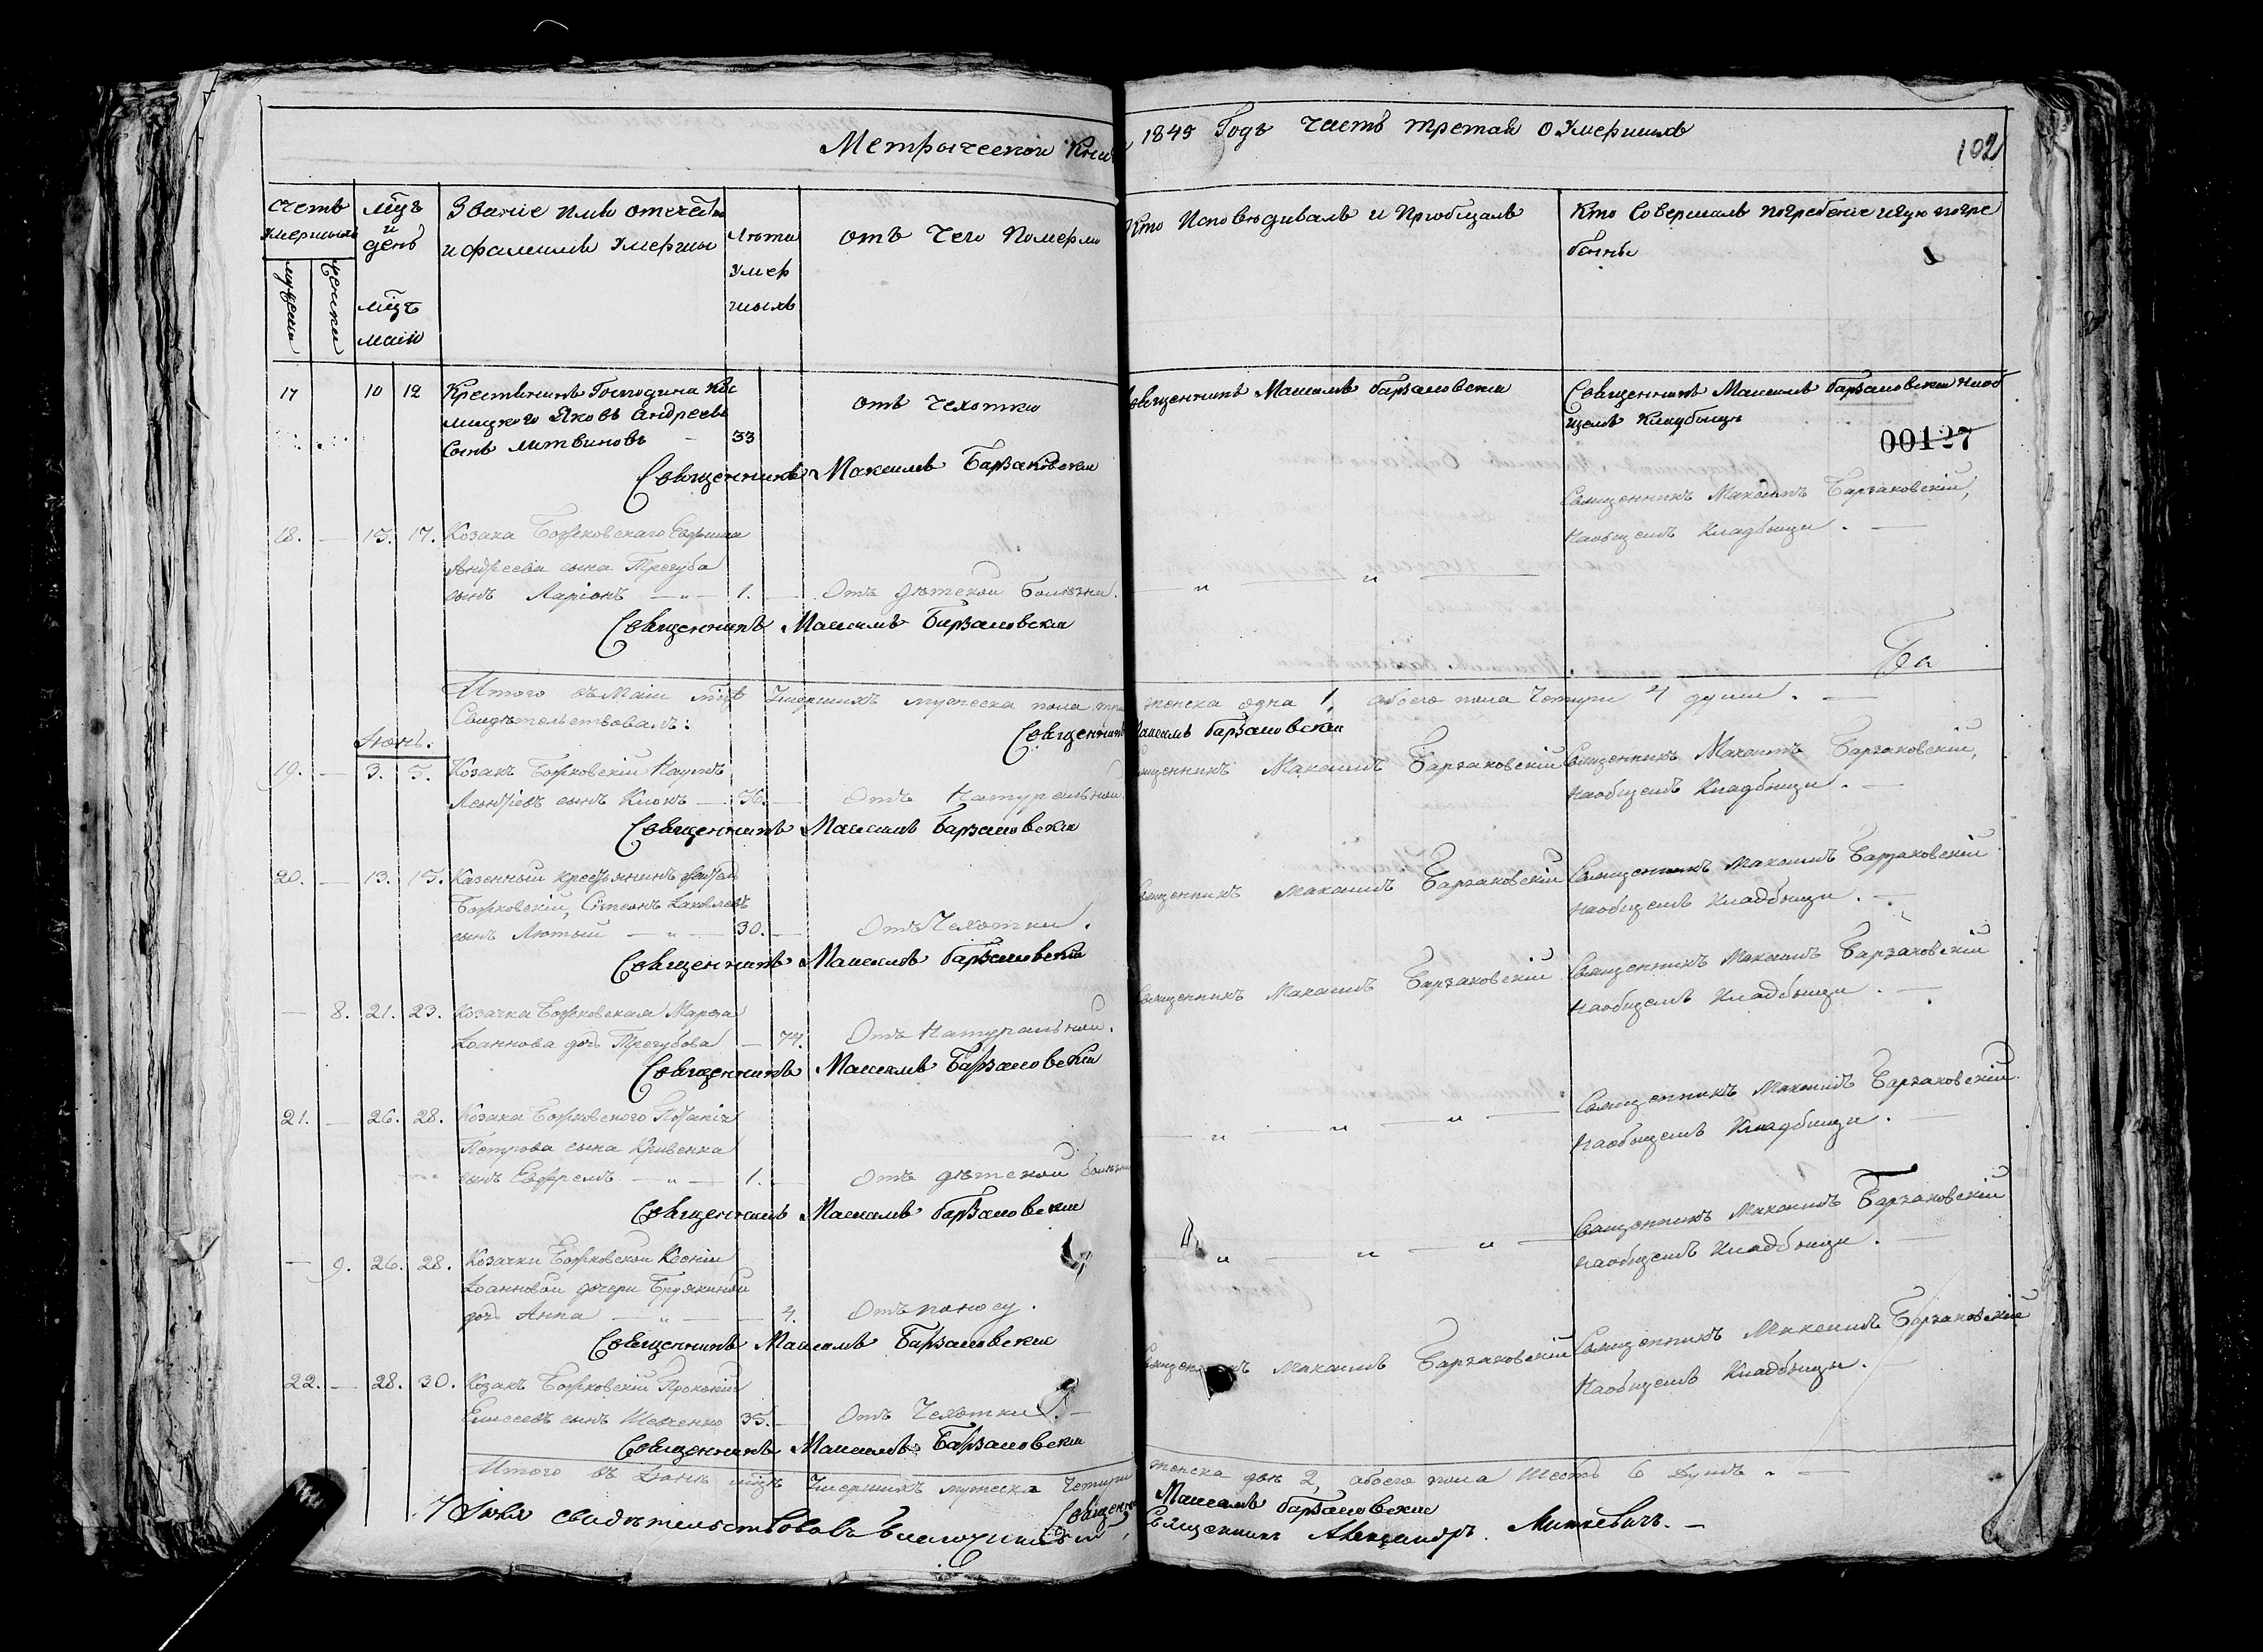 Метрической Книги 1845 Годъ Часть третая о Умершихъ
102
Счетъ Умершихъ
мужеска
женска
мцъ и день
мцъ маiй
Званiе имя отечество
и фамилiя Умершихъ
Лѣта Умершихъ
отъ Чего Померли
Кто Исповѣдивалъ и Приобщалъ
Кто Совершалъ Погребенiе и гдѣ погребенны
17 10 12 Крестянинъ Господина
Яковъ Андреевъ
Сынъ Литвиновъ - 33
отъ Чехотки
Священникъ Максимъ Барзаковскiй
Священникъ Максимъ Барзаковскiй на общемъ Кладбищѣ
00127
Священникъ Максимъ Барзаковскiй
18. — 15. 17. Козака Божковскаго Евфима
Андреева сына Трегуба
сынъ Ларiонъ — „ — 1. — Отъ дѣтской болѣзни. — „ — „ —
Священникъ Максимъ Барзаковскiй,
На общемъ Кладбищи. —
Священникъ Максимъ Барзаковскiй
Итого въ Маiи мцѣ Умершихъ мужеска пола три женска одна 1, обоего пола Четыри 4 души. —
Свидѣтельствовалъ:
Священникъ Максимъ Барзаковскiй
Iюнь.
19. — 3. 5. Козакъ Божковскiй Наумъ
Леонтiевъ сынъ Клюкъ — 56. — Отъ Натуральной.
Священникъ Максимъ Барзаковскiй
Священникъ Максимъ Барзаковскiй,
На общемъ Кладбищи. —
Священникъ Максимъ Барзаковскiй
20. — 13. 15. Казенный крестьянинъ
Божковскiй, Сѵмеонъ Iаковлевъ
сынъ Лютый — „ — 30. — Отъ Чехотки.
Священникъ Максимъ Барзаковскiй
Священникъ Максимъ Барзаковскiй
На общемъ Кладбищи. —
Священникъ Максимъ Барзаковскiй
— 8. 21. 23. Козачка Божковская Марѳа
Iоаннова дочь Трегубова — 74. Отъ Натуральной.
Священникъ Максимъ Барзаковскiй
Священникъ Максимъ Барзаковскiй
На общемъ Кладбищи. —
Священникъ Максимъ Барзаковскiй
21. — 26. 28. Козака Божковского Потапiя
Петрова сына Кривенка
сынъ Ефремъ — „ — 1. — Отъ дѣтской болѣзни
— „ — „ — „ —
Священникъ Максимъ Барзаковскiй
На общемъ Кладбищи. —
Священникъ Максимъ Барзаковскiй
— 9. 26. 28. Козачки Божковской Ксенiи
Iоанновой дочери
дочь Анна — „ — — 4. Отъ поносу.
— „ — „ — „ —
Священникъ Максимъ Барзаковскiй
На общемъ Кладбищи. —
Священникъ Максимъ Барзаковскiй
22. — 28. 30. Козакъ Божковскiй Прокопiй
Елисеевъ сынъ Шевченко 35. — Отъ Чехотки. —
Священникъ Максимъ Барзаковскiй
Священникъ Максимъ Барзаковскiй
На общемъ Кладбищи. —
Священникъ Максимъ Барзаковскiй
Итого въ Iюнѣ мцѣ Умершихъ мужеска Четыри женска двѣ 2, обоего пола Шесть 6 Душъ. —
Священникъ Максимъ Барзаковскiй
Iюля свидѣтельствовалъ Благочинный, Священникъ Александръ Миткевичъ. —